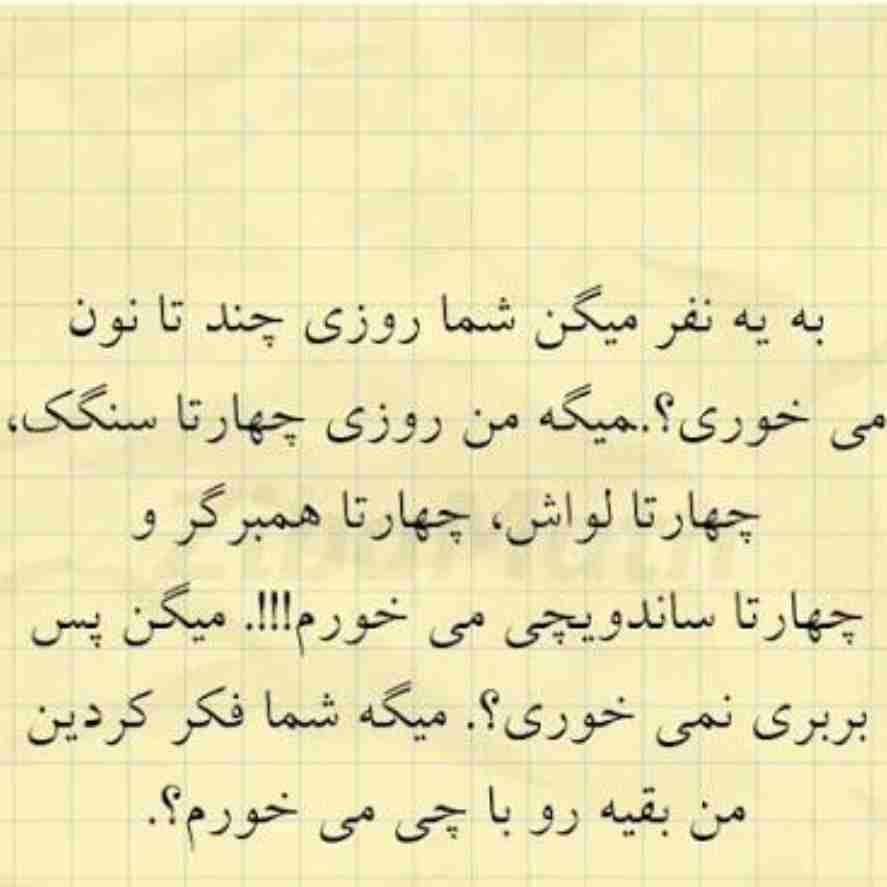 به یه نفر میگن شما روزی چند تا نون
می خوری؟.میگه من روزی چهارتا سنگک،
چهارتا لواش، چهارتا همبرگر و
چهارتا ساندویچی می خورم!!!. میگن پس
بربری نمی خوری؟. میگه شما فکر کردین
من بقیه رو با چی می خورم؟.